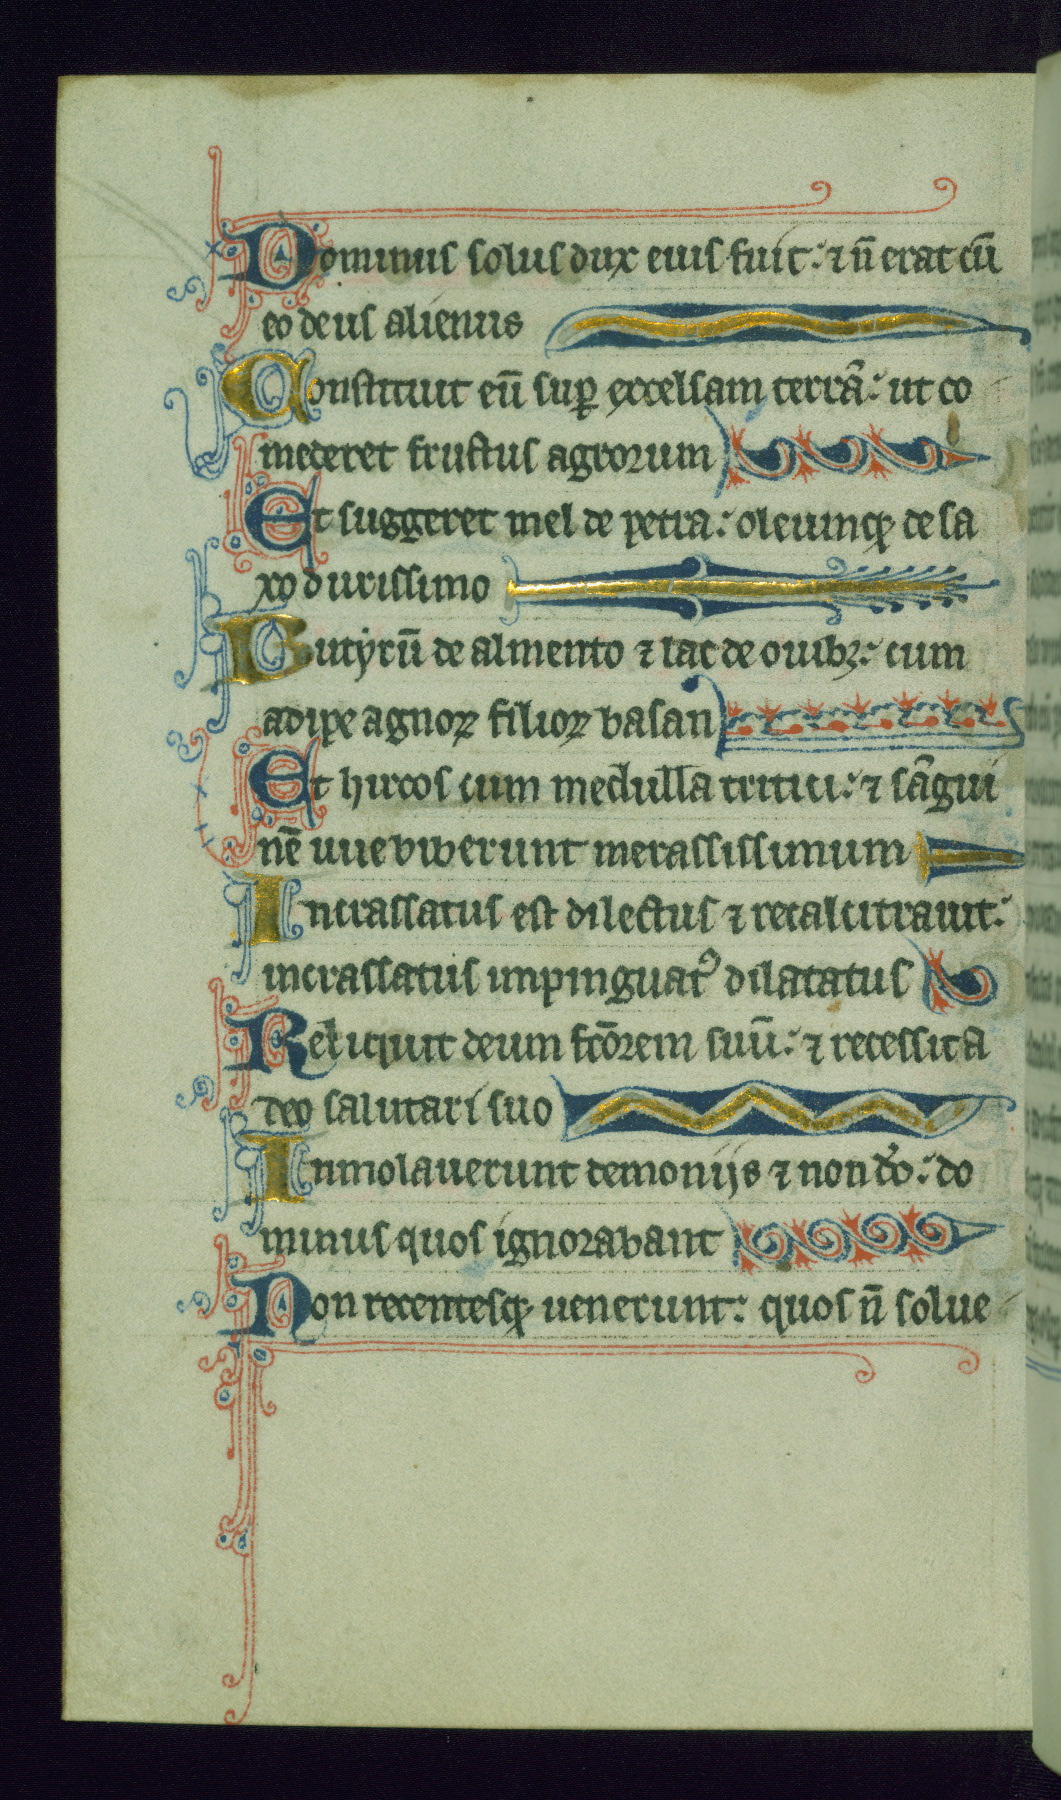 Dominus solus dux eius fuit: ⁊ ñ erat cū
eo deus alienus
Constituit eū sup̱ excelsam terrā: ut co
mederet fructus agrorum
Et suggeret mel de petra: oleumqꝫ de sa
xo durissimo
Butyrū de almento ⁊ lac de ouibꝫ: cum
adipe agnoꝝ filioꝝ basan
Et hircos cum medulla tritici: ⁊ sāgui
nē uue biberunt merassissimum
Incrassatus est dilectus ⁊ recalcitrauit:
incrassatus impinguatꝰ dilatatus
Reliquit deum fc̄orem suū: ⁊ recessit a
deo salutari suo
Inmolauerunt demoniis ⁊ non do: do
minus quos ignorabant
Non recentesqꝫ uenerunt: quos ñ solue